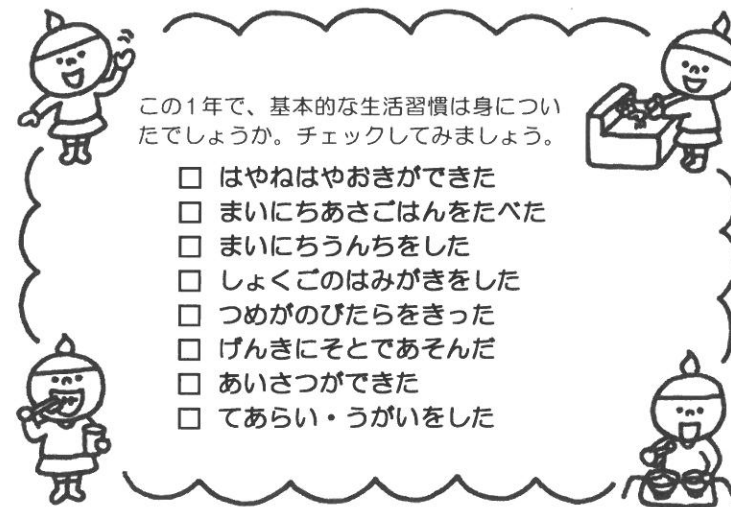 この1年で、基本的な生活習慣は身につい
たでしょうか。チェックしてみましょう。
□ はやねはやおきができた
□ まいにちあさごはんをたべた
□ まいにちうんちをした
□ しょくごのはみがきをした
□ つめがのびたらをきった
□ げんきにそとであそんだ
□ あいさつができた
□ てあらい・うがいをした